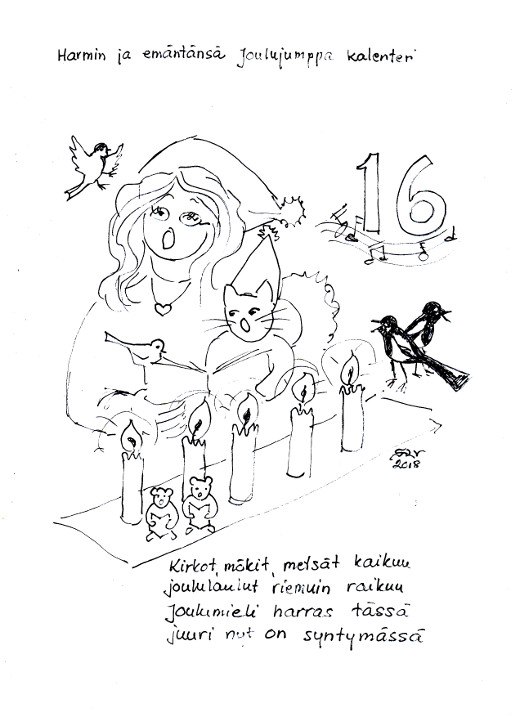 Harmin ja emäntänsä Joulujumppa kalenteri
16
2018
Kirkot, mökit, metsät kaikuu
joululaulut riemuin raikuu
Joulumieli harras tässä
juuri nyt on syntymässä